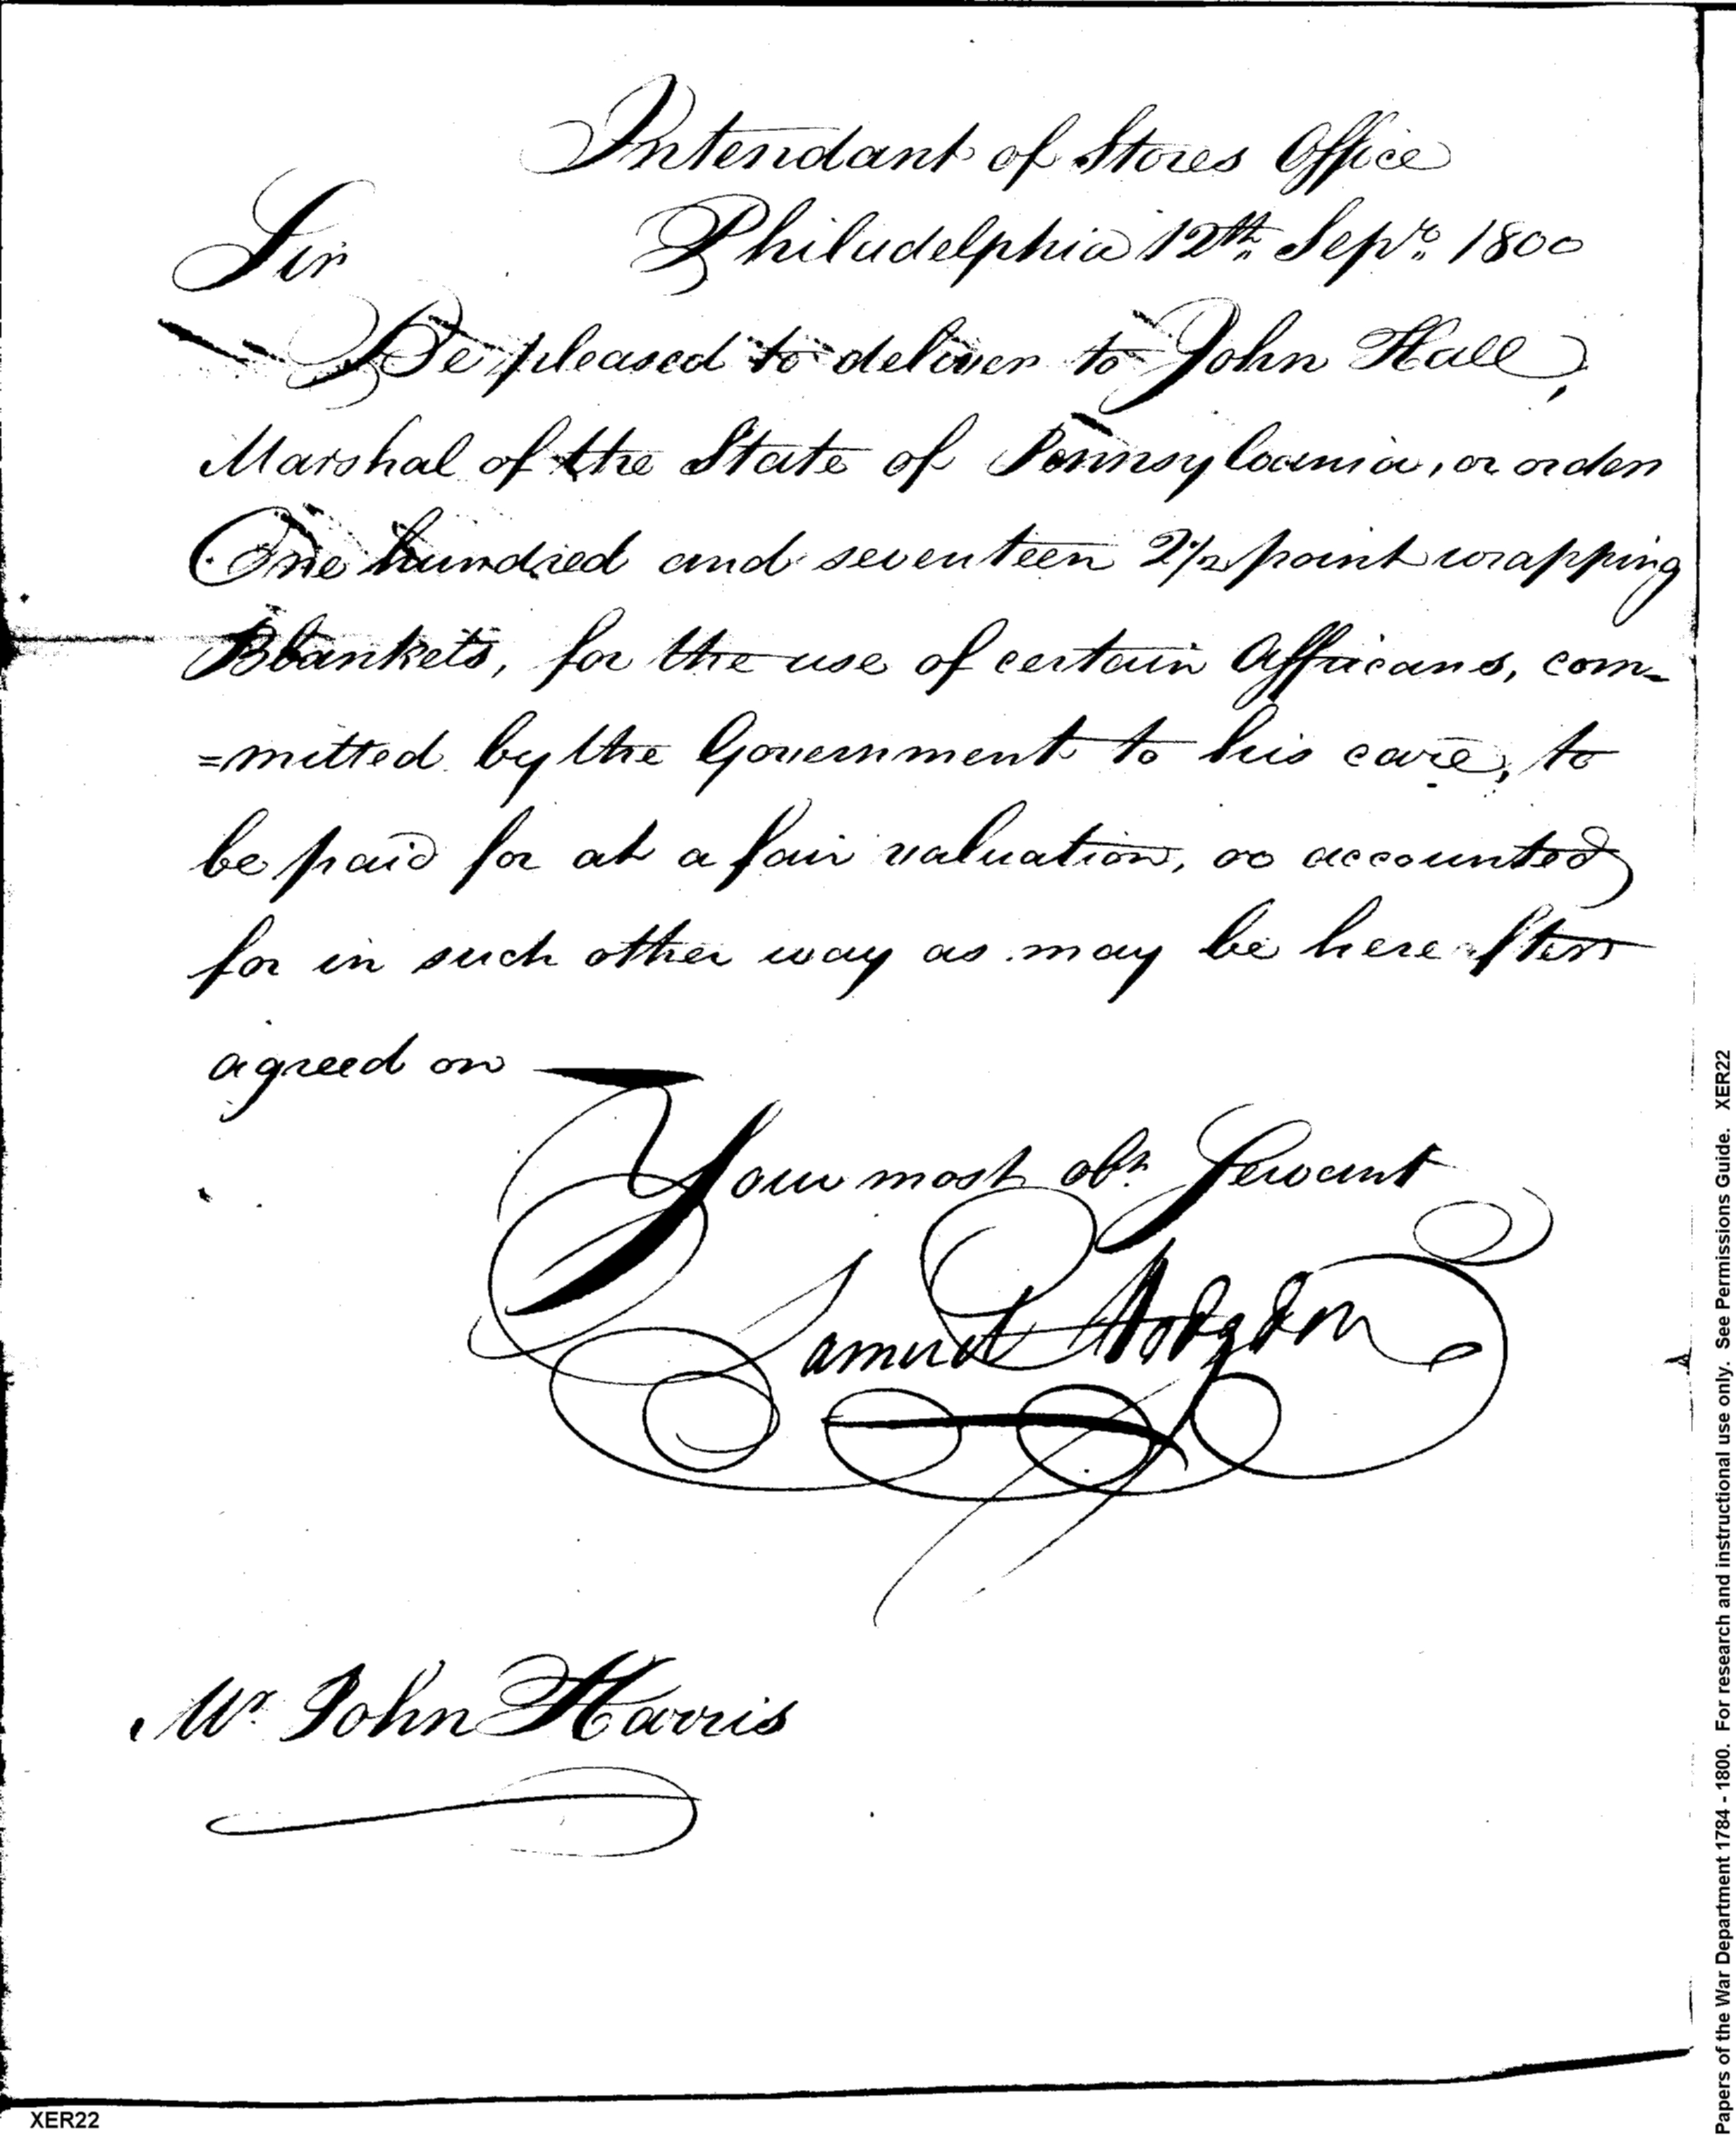 Intendant of Stores Office
Philadelphia 12th Sepr. 1800
Sir
Be pleased to deliver to John Hall,
Marshal of the State of Pennsylvania, or order
One hundred and seventeen 2 1/2 point wrapping
Blankets, for the use of certain Affricans, com-
=mitted by the Government to his care, to
be paid for at a fair valuation, or accounted
for in such other way as may be hereafter
agreed on
Your most obt. Servant
Samuel Hodgdon
Mr. John Harris
XER22
Papers of the War Department 1784 - 1800. For research and instructional use only. See Permissions Guide. XER22